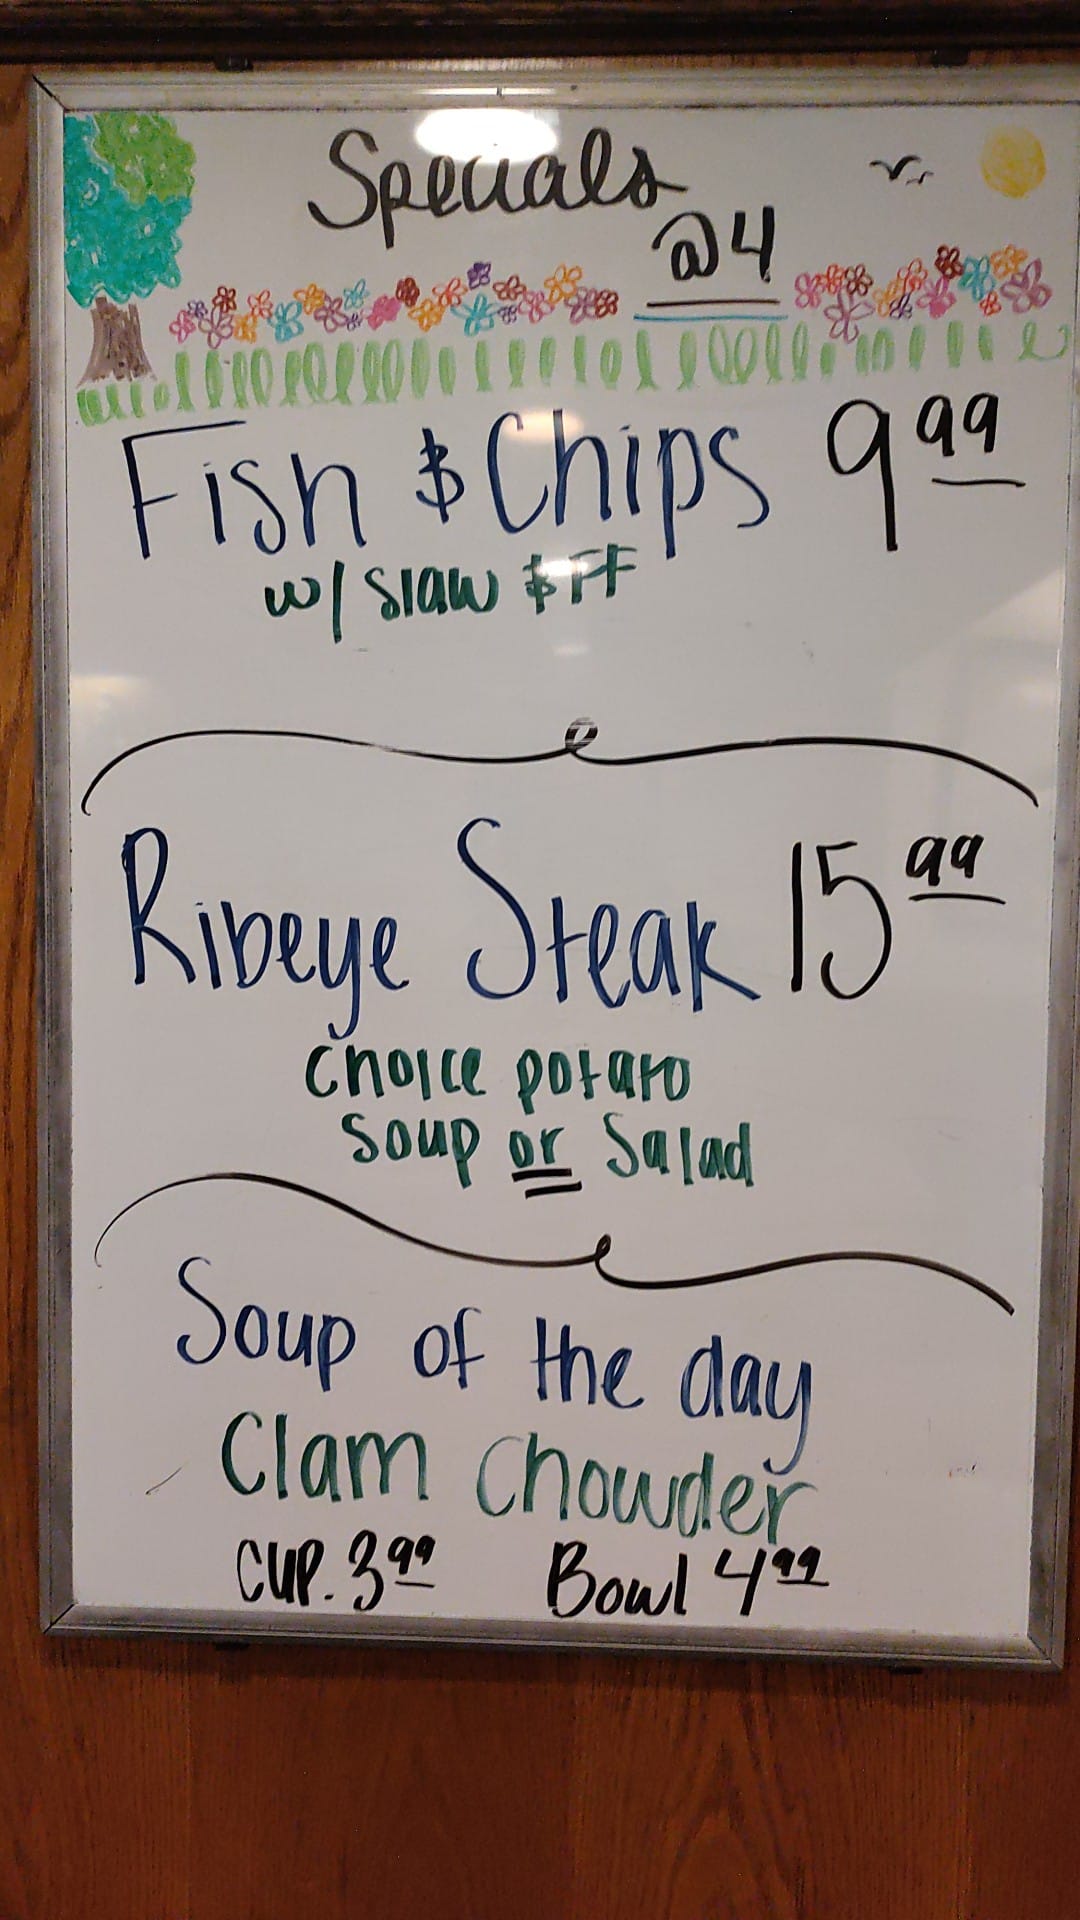 Specials
@4
Fish & Chips 9.99
w/ slaw & FF
Ribeye Steak 15.99
choice potato
soup or Salad
Soup of the day
Clam Chowder
CUP. 3.99 Bowl 4.99